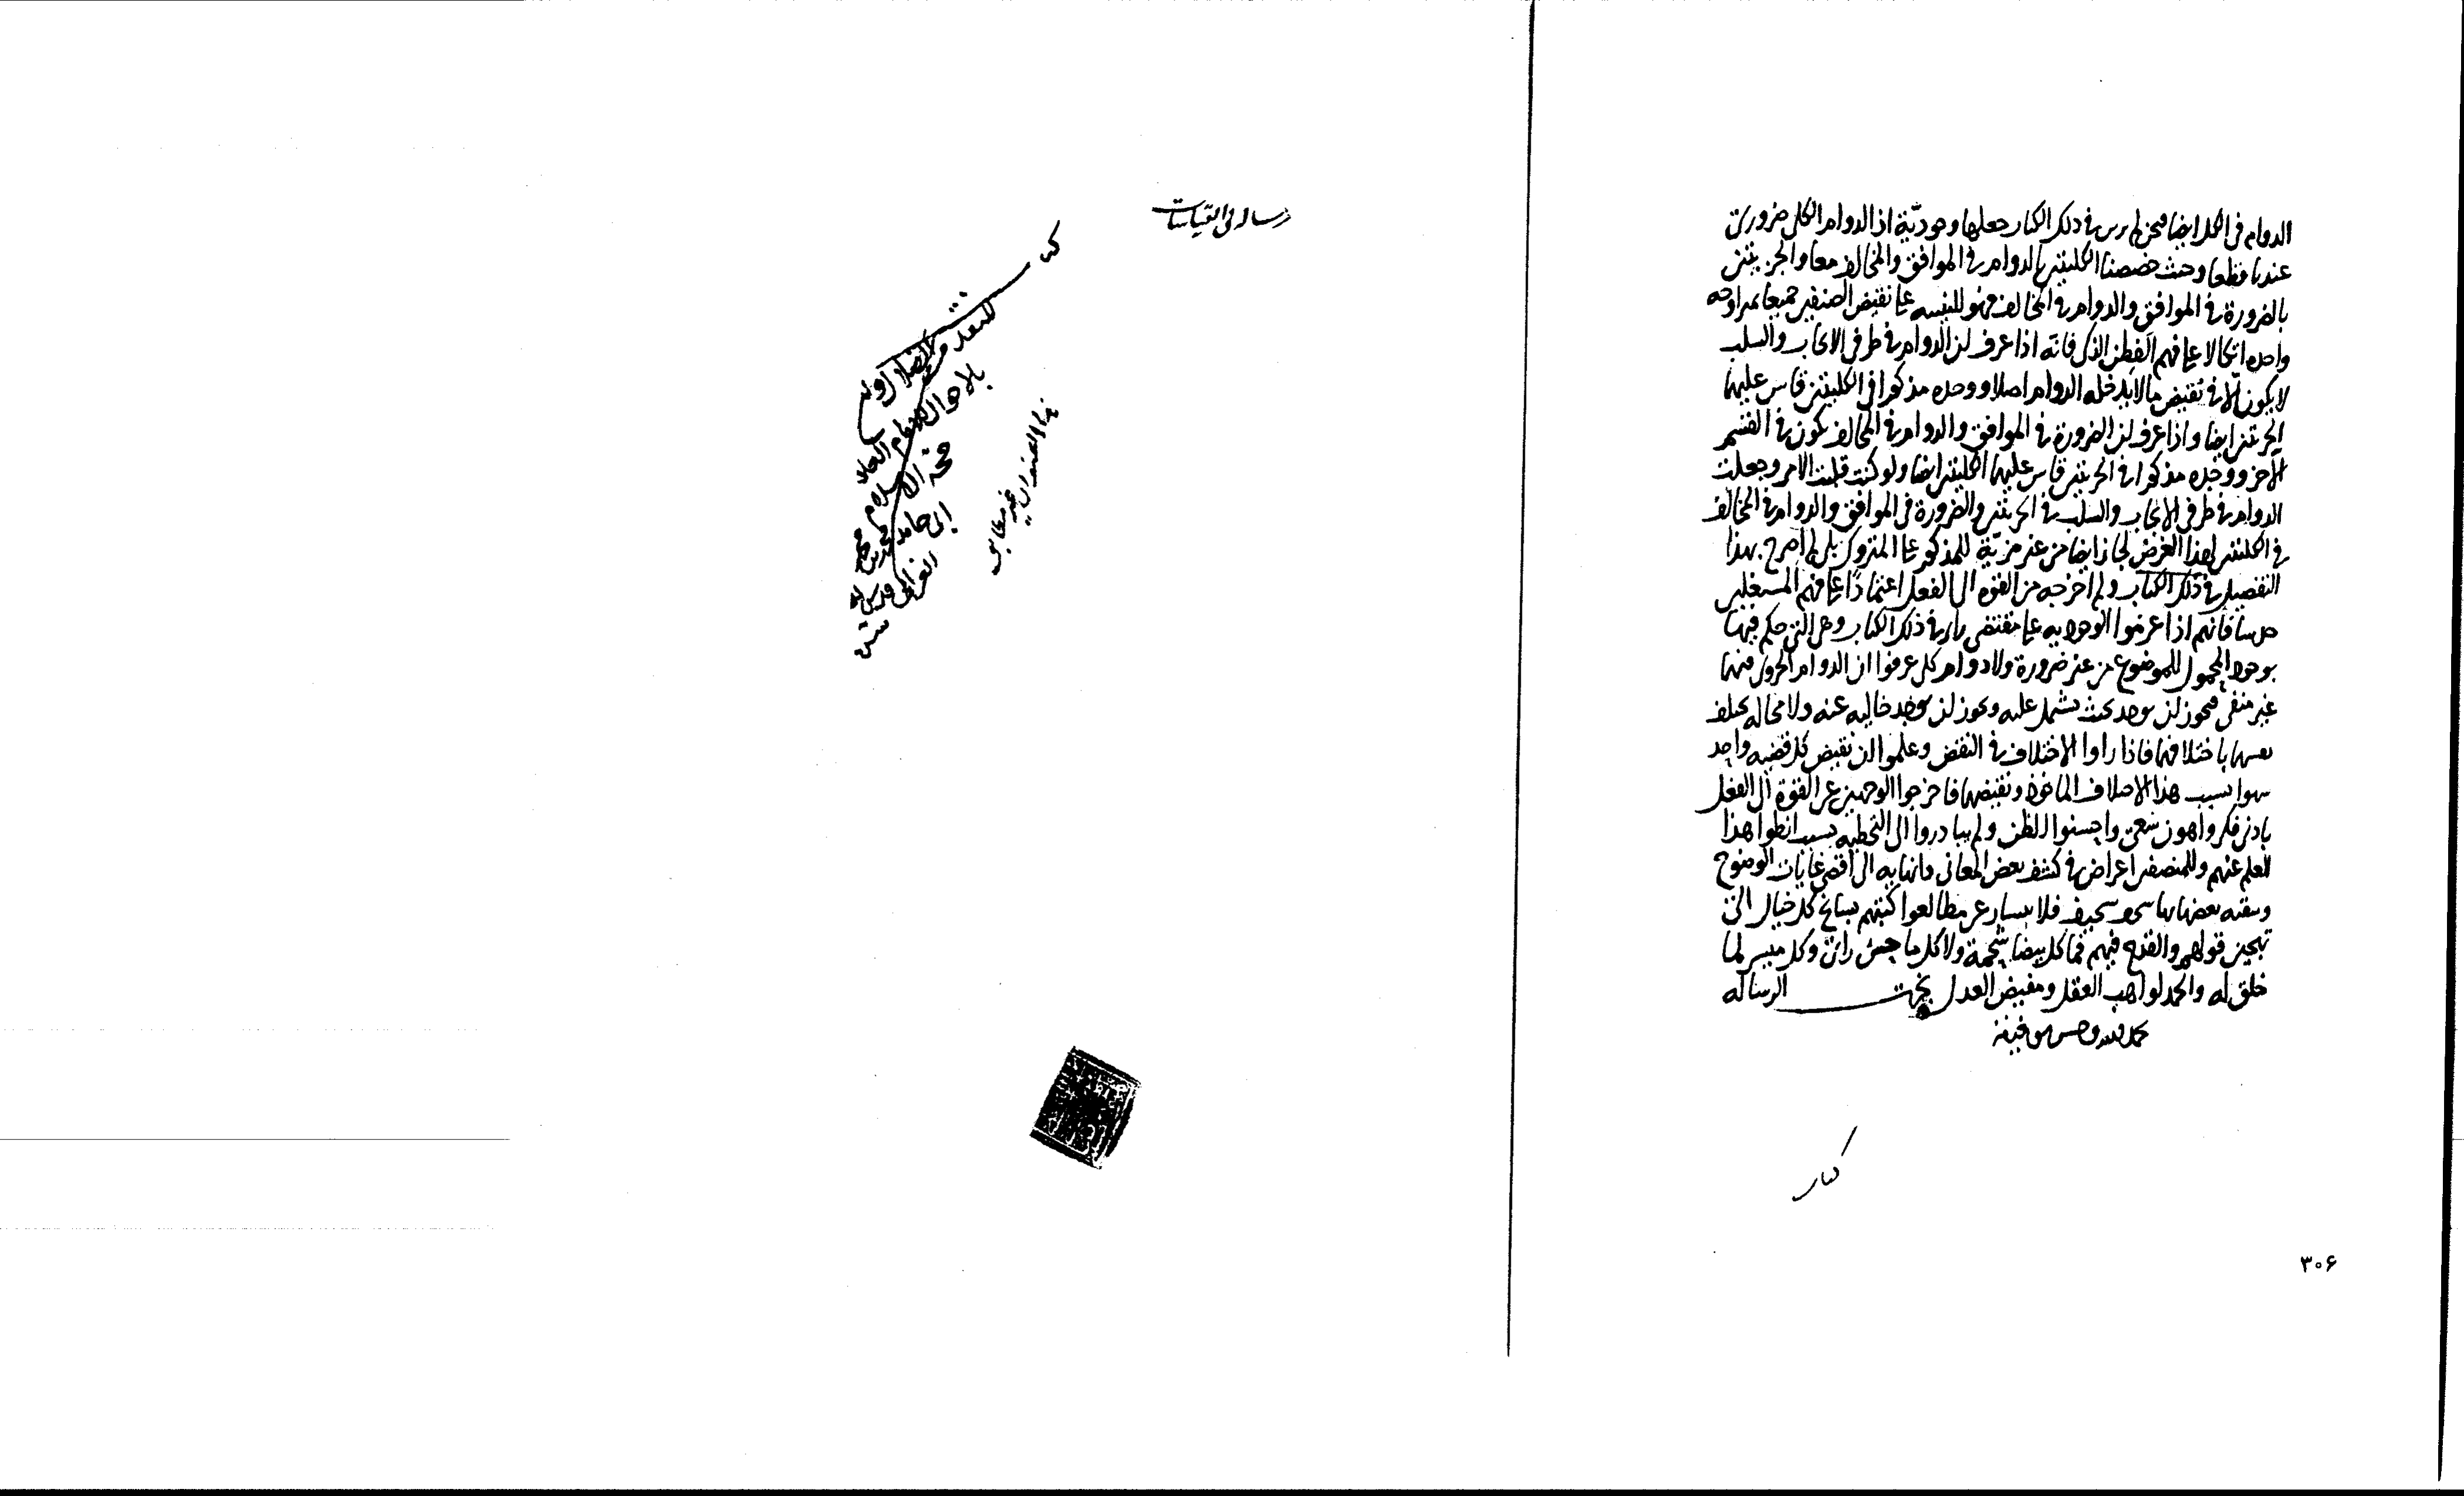 الدوام فى الكل ايضا فنحن لم نرس فى ذلك الكتاب جعلها وجوديّة اذ الدوام الكلى ضرورى
عندنا قطعا وحيث خصصنا الكليتين بالدوام فى الموافق والمخالف معا والجزيتين
بالضرورة فى الموافق والدوام فى المخالف فهو للتنبيه على نقيض الصنفين جميعا بمراوحه
واحده اتكالا على فهم الفطن الذكى فانه اذا عرف ان الدوام فى طرفى الايجاب والسلب
لا يكون الا فى نقيض ما لا يدخله الدوام اصلا ووجده مذكورا فى الكليتين قاس عليهما
الجزيتين ايضا واذا عرف ان الضرورة فى الموافق والدوام فى المخالف يكون فى القسم
الآخر ووجده مذكورا فى الجزيتين قاس عليهما الكليتين ايضا ولو كنت قلبت الامر وجعلت
الدوام فى طرفى الايجاب والسلب فى الجزيتين والضرورة فى الموافق والدوام فى المخالف
فى الكليتين لهذا الغرض لجاز ايضا من غير مزيّة للمذكور على المتروك بلى لم اصرح بهذا
التفصيل فى ذلك الكتاب ولم اخرجه من القوة الى الفعل اعتمادًا على فهم المستغلين
فانهم اذا عرفوا الوجوديه على مقتضى فى ذلك الكتاب وهى التى حكم فيها
بوجود المحمول للموضوع من غير ضرورة ولا دوام كلى عرفوا ان الدوام الجزوى فيها
غير منفى فيجوز ان يوجد بحيث يشتمل عليه ويجوز ان يوجد خاليه عنه ولا محاله يختلف
باختلافها فاذا راوا الاختلاف فى النقض وعلموا ان نقيض كل قضيه واحد
بسبب هذا الاختلاف الماخوذ ونقيضها فاخرجوا الوجهين عن القوة الى الفعل
بادنى فكر واهون سعى واحسنوا الظن ولم يبادروا الى التخطيه بسبب انطوا هذا
العلم عنهم وللمصنفين اعراض فى كشف بعض المعانى وانهايه الى اقصى غايات الوضوح
بعضها فلا يسارعن مطالعوا كتبهم بسانح كل خيال الى
تهجين قولهم والقدح فيهم فما كل بيضا شحمة ولا كل ما وكل ميسر لما
خلق له والحمد لواهب العقل ومفيض العدل نجزت الرساله
بحمد الله وحسن توفيقه
٣٠۶
رساله فى القياسات
كتاب
المنقذ من الضلال
بالاحوال للامام العالم
حجة الاسلام
ابى حامد محمد بن محمد
الغزالى قدس الله
سره
هذا العنوان غير مطابق